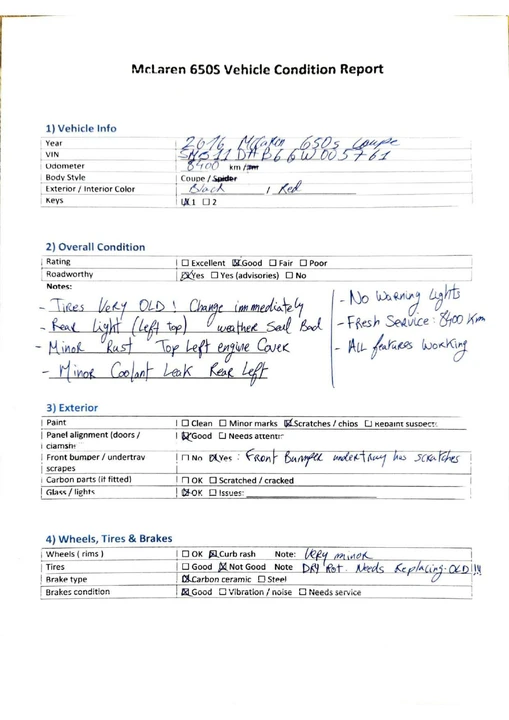 McLaren 650S Vehicle Condition Report
1) Vehicle Info
Year 2016 McLaren 650s Coupe
VIN
Odometer 8400 km /
Body Style Coupe / Spider
Exterior / Interior Color Black / Red
Keys ☒ 1 ☐ 2
2) Overall Condition
Rating ☐ Excellent ☒ Good ☐ Fair ☐ Poor
Roadworthy ☒ Yes ☐ Yes (advisories) ☐ No
Notes:
- Tires Very OLD! Change immediately
- Rear Light (Left top) weather Seal Bad
- Minor Rust Top Left engine Cover
- Minor Coolant Leak Rear Left
- No Warning Lights
- Fresh Service: 8400 Km
- ALL features Working
3) Exterior
Paint ☐ Clean ☐ Minor marks ☒ Scratches / chips ☐ Repaint suspect
Panel alignment (doors / ☒ Good ☐ Needs attenti
Front bumper / undertray ☐ No ☒ Yes: Front Bumper undertray has scratches
scrapes
Carbon parts (if fitted) ☐ OK ☐ Scratched / cracked
Glass / lights ☒ OK ☐ Issues:
4) Wheels, Tires & Brakes
Wheels ( rims ) ☐ OK ☒ Curb rash Note: Very minor
Tires ☐ Good ☒ Not Good Note DRY Rot. Needs Replacing. OLD!!!
Brake type ☒ Carbon ceramic ☐ Steel
Brakes condition ☒ Good ☐ Vibration / noise ☐ Needs service